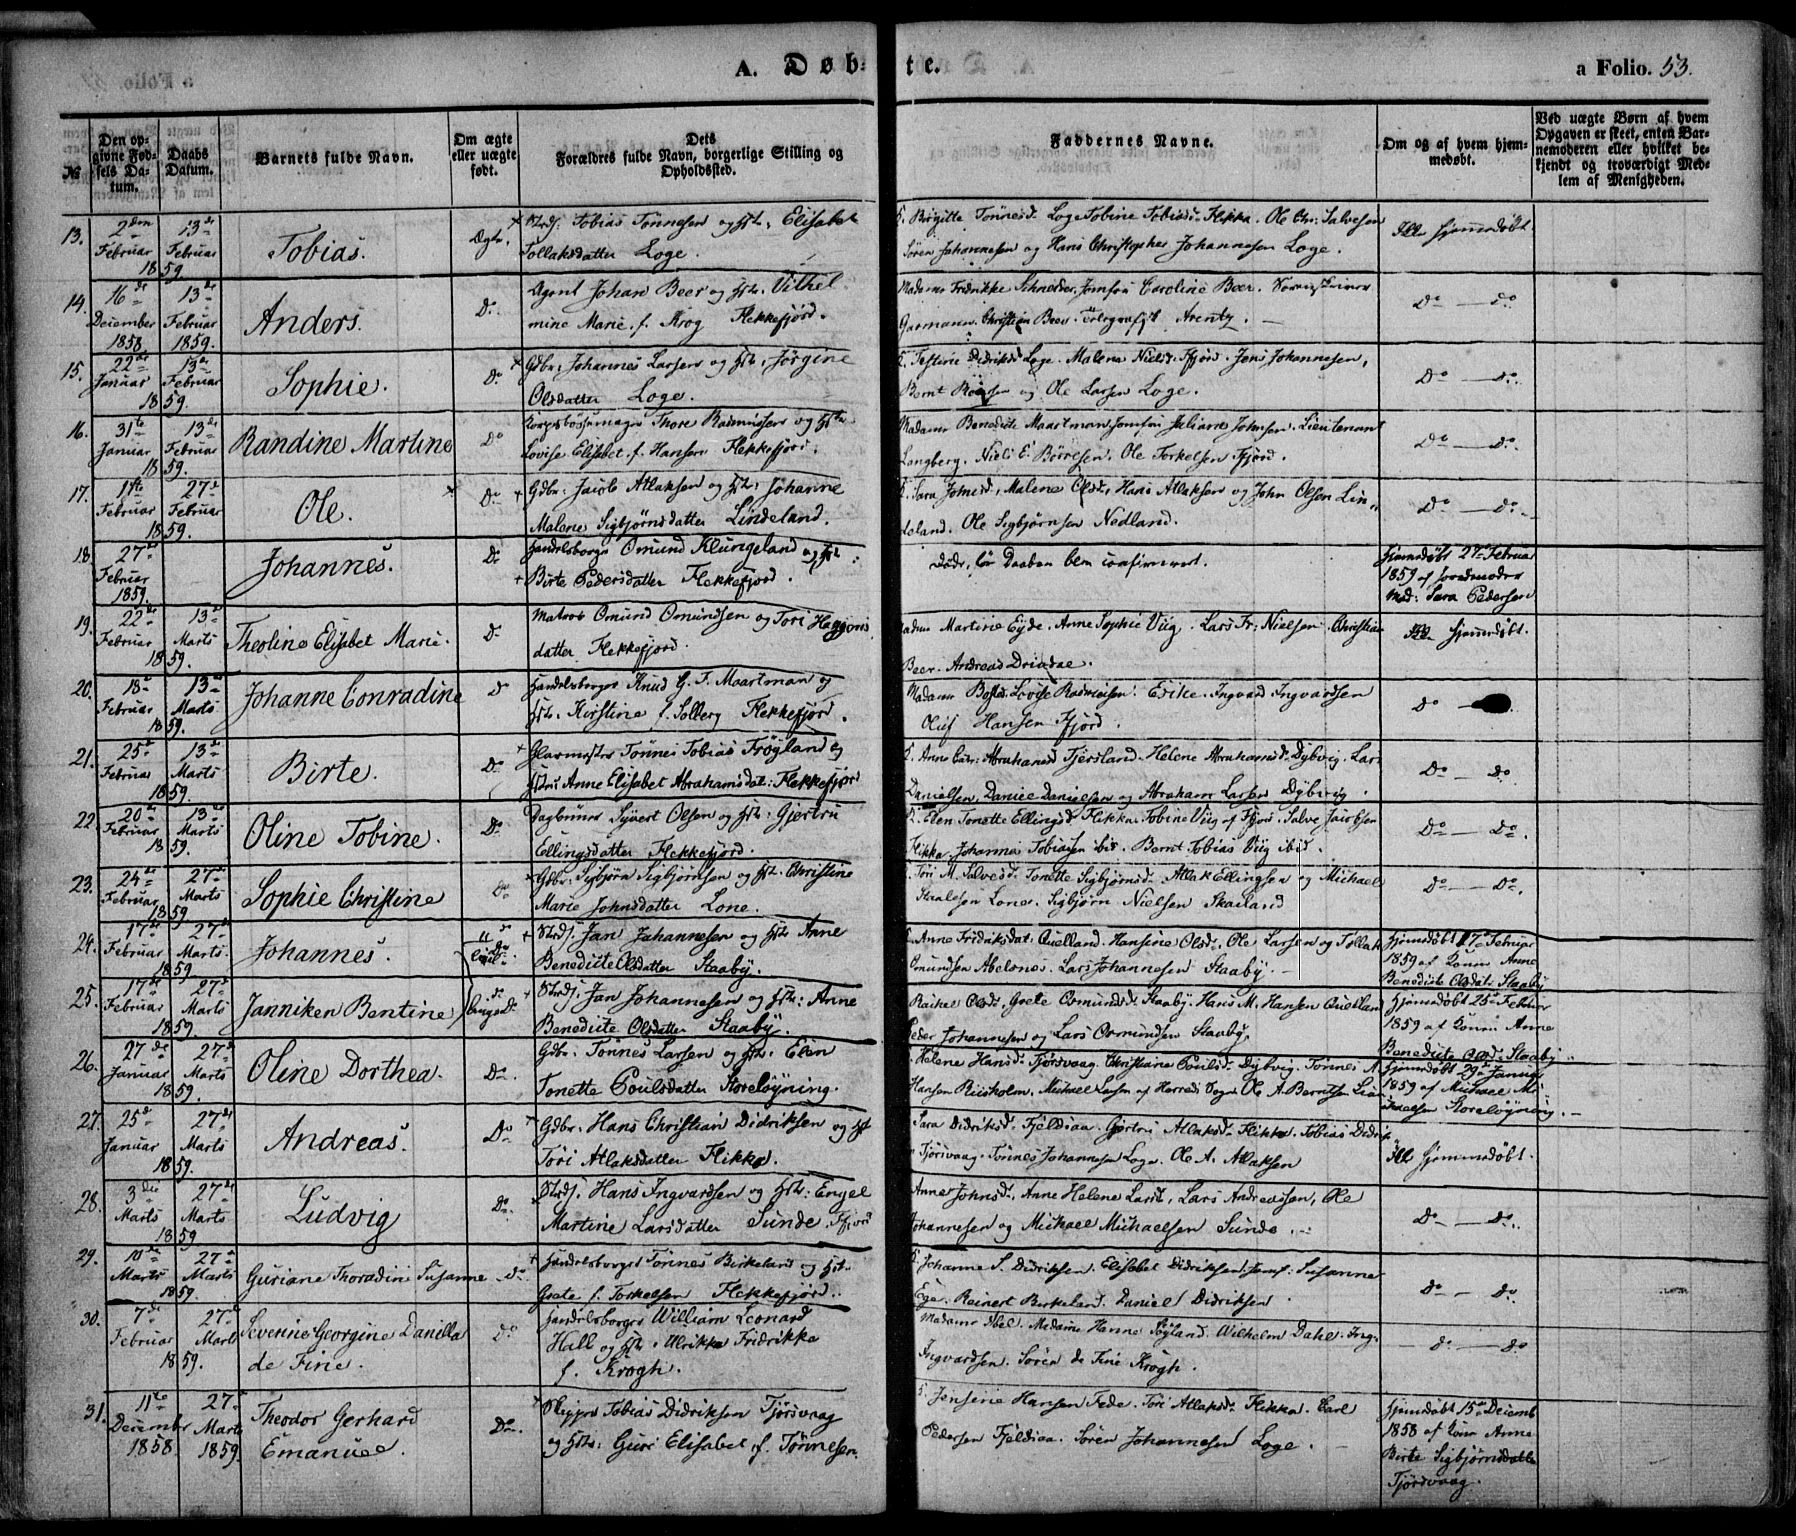 A. Døbte.
a Folio. 53.
№
Den opgivne Fødsels Datum.
Daabs Datum.
Barnets fulde Navn.
Om ægte eller uægte født.
Dets Forældres fulde Navn, borgerlige Stilling og Opholdssted.
Faddernes Navne.
Om og af hvem hjemmedøbt.
Ved uægte Børn af hvem Opgaven er skeet, enten Barnemoderen eller hvilket bekjendt og troværdigt Medlem af Menigheden.
13. 2den Februar 1859 13de Februar Tobias. Ægte. Strdj. Tobias Tønnesen og Hst. Elisabet
Tollaksdatter Loge.
Birgitte Tønnesd. Loge Tobine Tobiasd. Flikka. Ole Chr. Salvesen
Søren Johannesen og Hans Christopher Johannesen Loge.
Ikke hjemmedøbt
14. 16de December 1858 13de Februar 1859. Anders. Do Agent Johan Beer og Hst. Vilhel
mine Marie f. Krog Flekkefjord.
Madame Fridrikke Schneider. Jomfru Caroline Beer. Sorenskriver
Garmann. Christian Beer. Arentz.
Do — Do
15. 22de Januar 1859 13de Februar Sophie. Do Gdbr. Johannes Larsen og Hst. Jørgine
Olsdatter Loge.
Didriksd. Loge. Malena Nielsd. Fjord. Jens Johannesen,
Bernt og Ole Larsen Loge.
Do — Do.
16. 31te Januar 1859 13de Februar Randine Martine Do Korpsbøssemager Thore Rasmussen og Hst.
Lovise Elisabet f. Hansen Flekkefjord.
Madame Benedicte Maartman Jomfru Juliane Johnsen. Lieutenant
Langberg. Niels E. Børresen. Ole Torkelsen Fjord.
Do — Do
17. 1ste Februar 1859 27de Februar Ole. Do Gdbr. Jacob Atlaksen og Hst. Johanne
Malene Sigbjørnsdatter Lindeland.
Sara Johnsd., Malene Olsd., Hans Atlaksen og John Olsen Lin
deland. Ole Sigbjørnsen Nedland.
Do — Do.
18 27de Februar 1859. Johannes. Do Handelsborger Omund Klungeland og Hst.
Birte Pedersdatter Flekkefjord.
Døde, før Daaben blev confirmeret.
Hjemmedøbt 27de Februar
1859 af Jordmoder
Mad. Sara Pedersen
19. 22de Februar 1859. 13de Marts Theoline Elisabet Marie. Do Matros Omund Omundsen og Tori
datter Flekkefjord.
Madam Martine Eyde. Anne Sophie Viig. Lars Fr. Nielsen. Christian
Beer. Andreas Drivdae.
Ikke hjemmedøbt.
20. 18de Februar 1859. 13de Marts Johanne Conradine Do Handelsborger Knud G. T. Maartman og
Hst. Kirstine f. Solberg Flekkefjord.
Madame Lovise Rasmussen. Ingvard Ingvardsen
Oluf Hansen Fjord.
Do
21. 25de Februar 1859. 13de Marts Birte. Do Glarmester Tønnes Tobias Frøyland og
Hstru Anne Elisabet Abrahamsdat. Flekkefjord
Anne Cat. Abrahamsd. Tjersland. Helene Abrahamsd. Dybvig. Lars
Danielsen, Daniel Danielsen og Abraham Larsen Dybvig.
Do — Do
22. 20de Februar 1859. 13de Marts Oline Tobine. Do Dagbruner Syvert Olsen og Hst. Gjertru
Ellingsdatter Flekkefjord.
Elen Tonette Ellingsd. Flikka. Tobine Viig af Fjord. Salve Jacobsen
Flikka. Johannes Tobiasen ibid. Bernt Tobias Viig ibid.
Do — Do.
23. 24de Februar 1859 27de Marts Sophie Christine Do Gdbr. Sigbjørn Sigbjørnsen og Hst. Christine
Marie Johnsdatter Lone.
Tori M. Salvesd. Tonette Sigbjørnsd. Atlak Ellingsen og Michael
Staalesen Lone. Sigbjørn Nielsen Skailand
Do — Do.
24. 17de Februar 1859. 27de Marts. Johannes. Strdj. Jan Johannesen og Hst. Anne
Benedicte Olsdatter Staaby.
Anne Fridriksdat. Quelland. Hansine Olsd., Ole Larsen og Tollak
Omundsen Abelsnes. Lars Johannesen Staaby.
Hjemmedøbt 17de Februar
1859 af Konen Anne
Benedicte Olsdat. Staaby
25. 17de Februar 1859. 27de Marts Janniken Bentine Do Strdj. Jan Johannesen og Hst. Anne
Benedicte Olsdatter Staaby.
Raikel Olsd., Grete Osmundsd. Staaby. Hans M. Hansen Quelland
Peder Johannesen og Lars Osmundsen Staaby.
Hjemmedøbt 25de Februar
1859 af Konen Anne
Benedicte Olsd. Staaby.
26. 27de Januar 1859. 27de Marts Oline Dorthea. Do. Gdbr. Tønnes Larsen og Hst. Elen
Tonette Poulsdatter Storeløyning.
Helene Hansd. Tjørsvaag. Christiane Poulsd. Dybvig. Tønnes A.
Hansen Birkholm. Michael Larsen af Herreds Sogn Ole A. Berntsen
Hjemmedøbt 29de Januar
1859 af Michael Mi
chaelsen Storeløyning.
27. 25de Januar 1859 27de Marts Andreas. Do Gdbr. Hans Christian Didriksen og Hst
Tori Atlaksdatter Flikka.
Sara Didriksd. Fjeldsaa. Gjertrud Atlaksd. Flikka. Tobias Didrik
Tjørsvaag. Tønnes Johannesen Loge. Ole A. Atlaksen
Ikke hjemmedøbt.
28. 3die Marts 1859 27de Marts Ludvig Do. Strdj. Hans Ingvardsen og Hst. Engel
Martine Larsdatter Sunde. Fjord
Anne Johnsd., Anne Helene Larsd., Lars Andreassen, Ole
Johannesen og Mickael Mickaelsen Sunde.
Do — Do.
29. 10de Marts 1859. 27de Marts Guriane Thoradine Susanne Do. Handelsborger Tønnes Birkeland og Hst.
Grete f. Torkelsen Flekkefjord.
Johanne S. Didriksen. Elisabet Didriksen. Jomf. Susanne
Ege. Reinert Birkeland. Daniel Didriksen.
Do — Do.
30. 7de Februar 1859. 27de Marts Severine Georgine Danilla
de Fine. Do Handelsborger William Leonard
Hall og Hst. Ulrikke Fridrikke
f. Krogh.
Madame Abel. Madame Hanne Søyland. Wilhelm Dahl. Ing.
Ingvardsen. Søren de Fine Krogh.
Do — Do
31. 11te December 1858 27de Marts 1859. Theodor Gerhard
Emanuel. Do. Skipper Tobias Didriksen Tjørsvaag
og Hst. Guri Elisabet f. Tønnesen.
Jensine Hansen Fede. Tori Atlaksd. Flikka. Carl
Pedersen Fjeldsaa. Søren Johannesen Loge.
Hjemmedøbt 15de Decemb
1858 af Kone Anne
Birte Sigbjørnsdatter
Tjørsvaag.